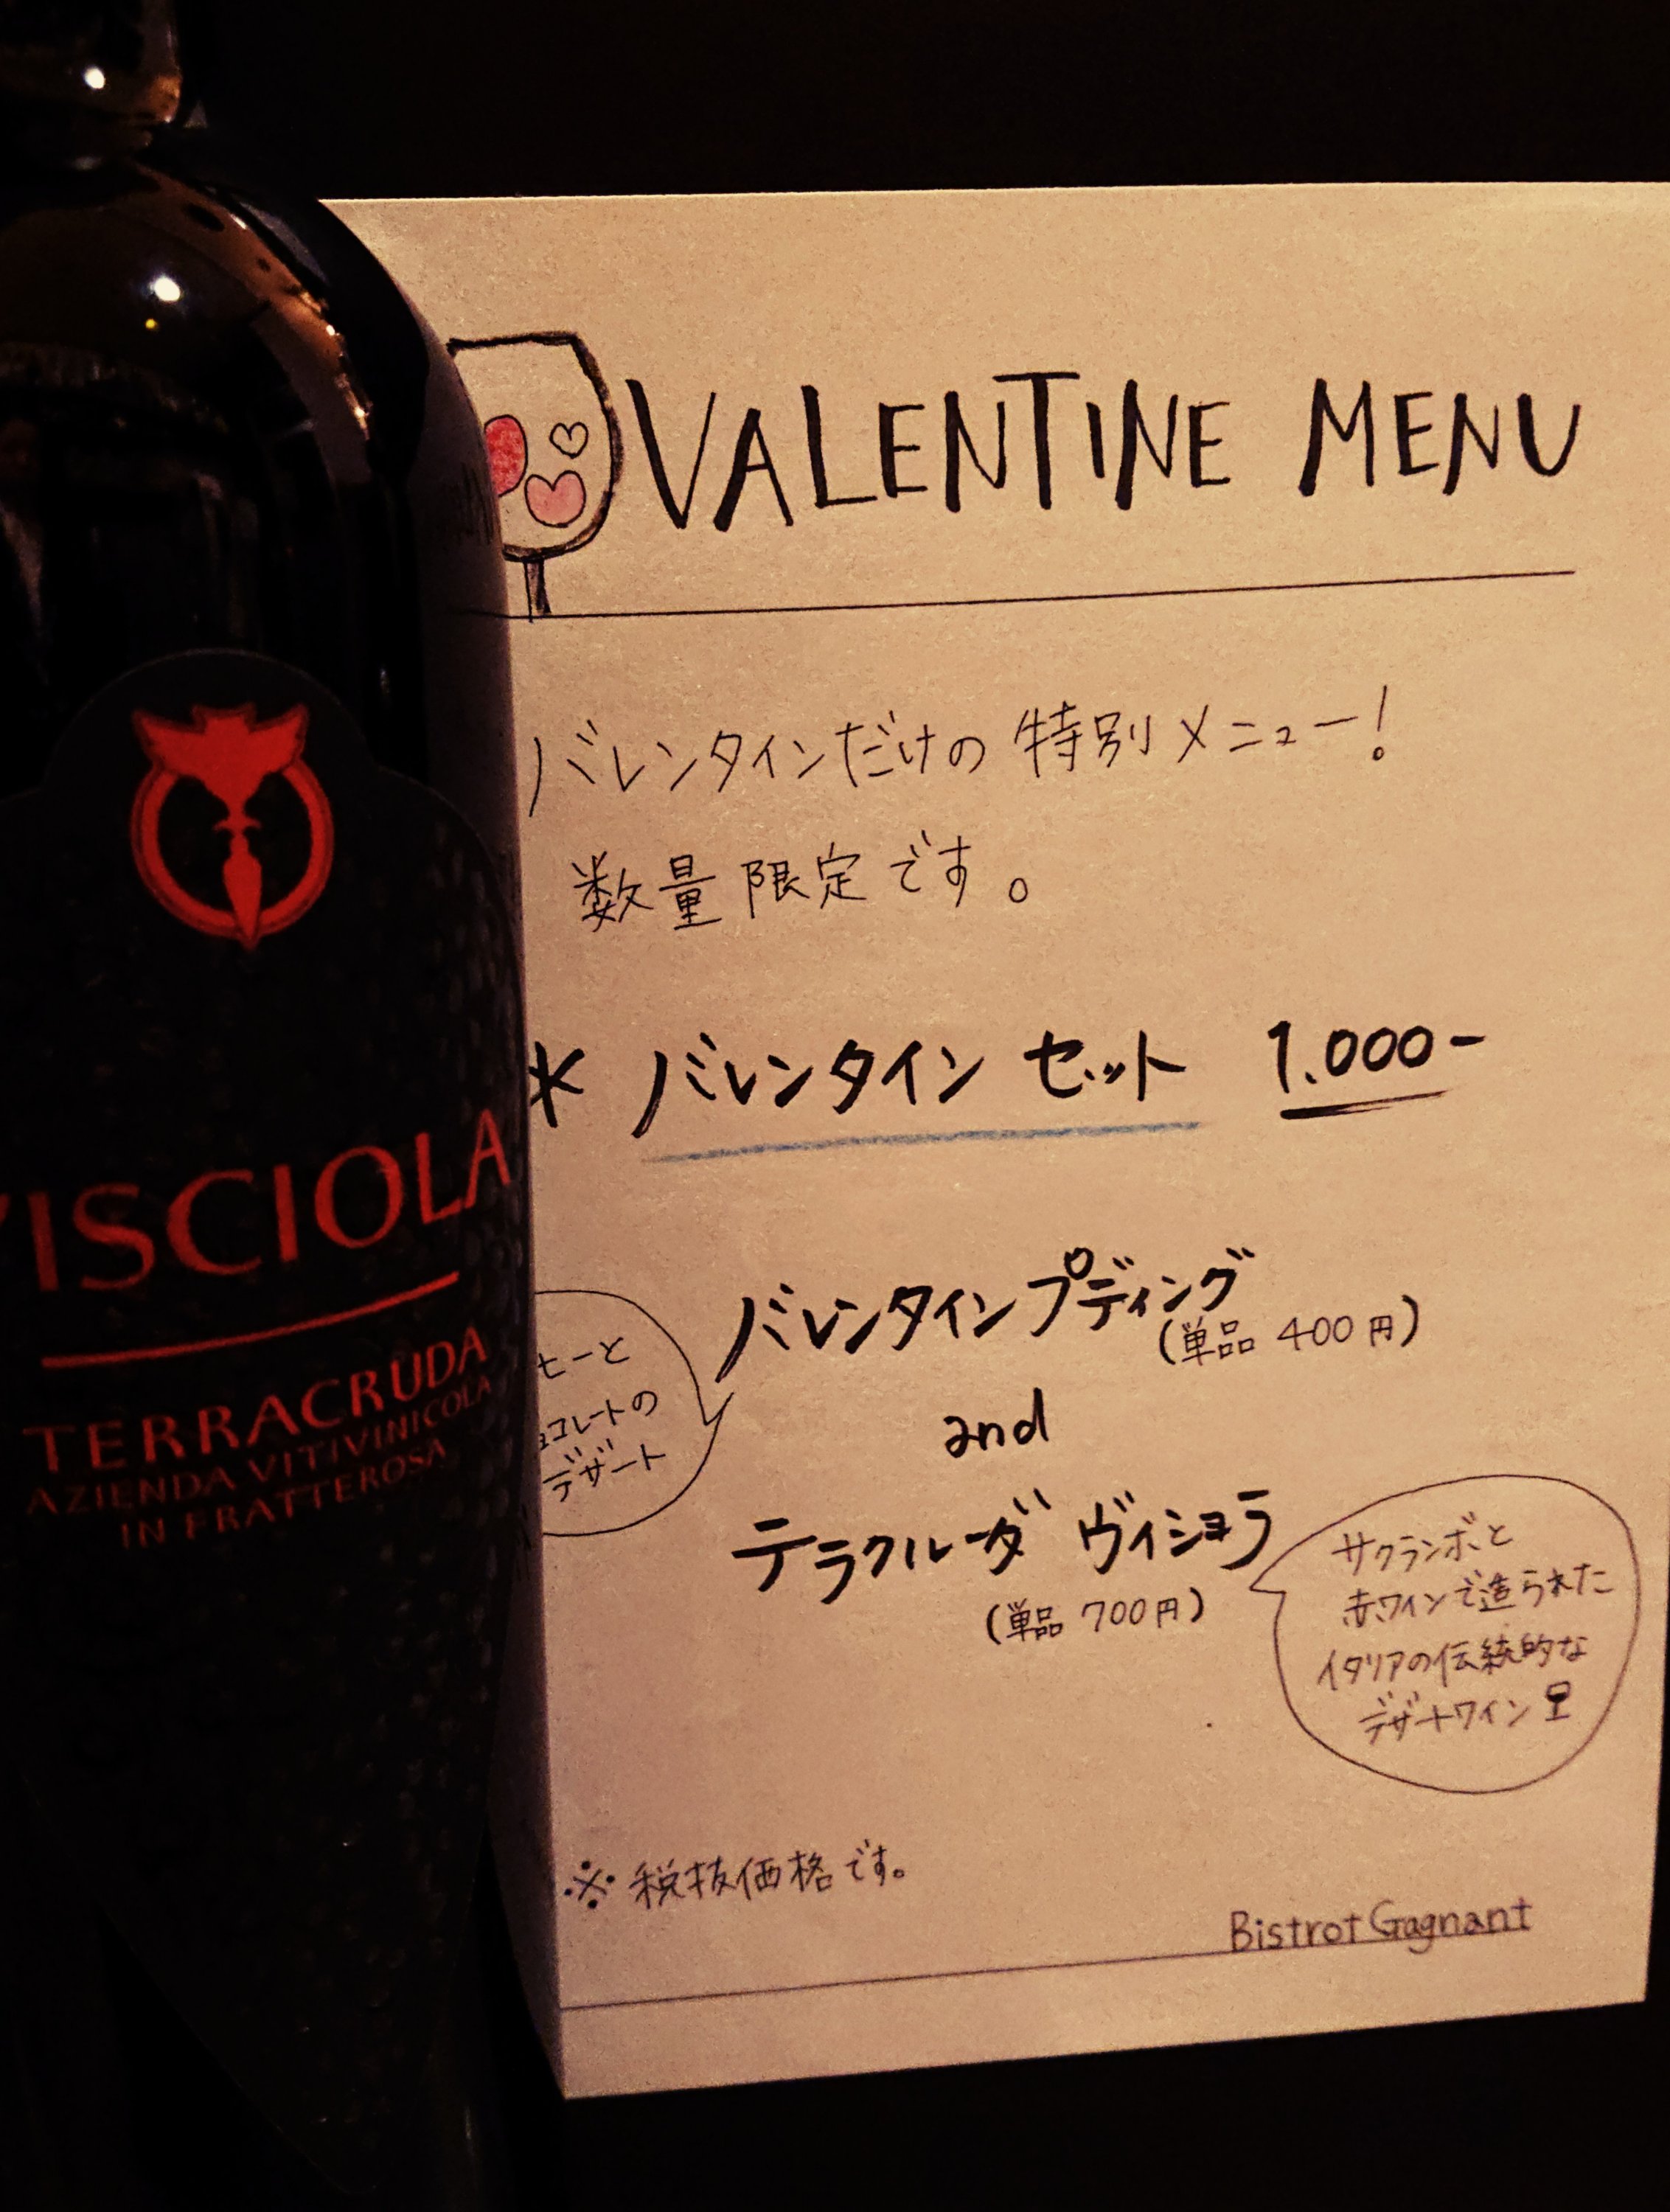 VALENTINE MENU
バレンタインだけの特別メニュー!
数量限定です。
* バレンタイン セット 1.000-
バレンタインプディング
(単品 400円)
ヒーと
ョコレートの
デザート
and
テラクルーダ ヴィショラ
(単品 700円)
サクランボと
赤ワインで造られた
イタリアの伝統的な
デザートワイン
※税抜価格です。
Bistrot Gagnant
VISCIOLA
TERRACRUDA
AZIENDA VITIVINICOLA
IN FRATTEROSA